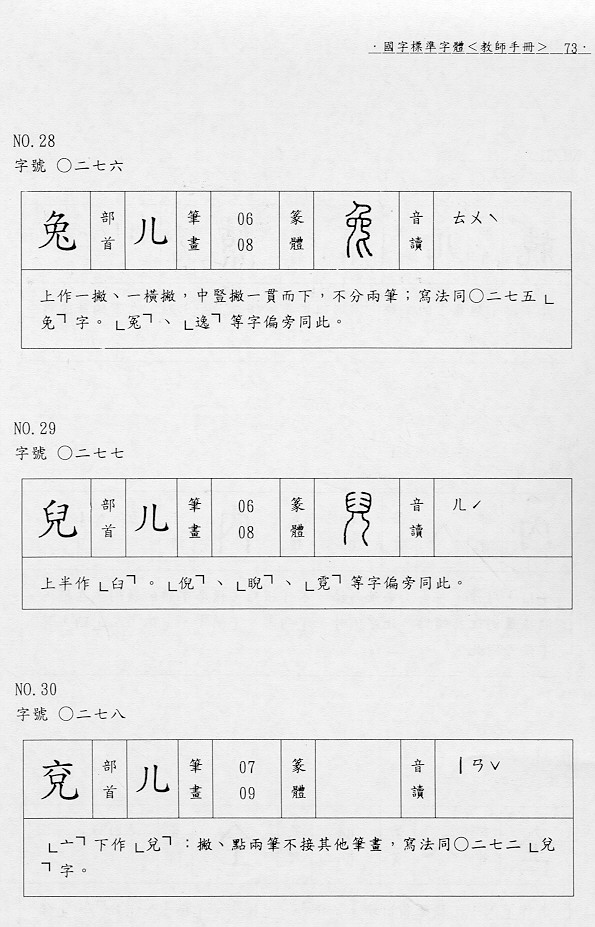 ．國字標準字體＜教師手冊＞ 73．
NO.28
字號 ○二七六
兔 部首 儿 筆畫 06 08 篆體 音讀 ㄊㄨˋ
上作一撇、一橫撇，中豎撇一貫而下，不分兩筆；寫法同○二七五「
免」字。「冤」、「逸」等字偏旁同此。
NO.29
字號 ○二七七
兒 部首 儿 筆畫 06 08 篆體 音讀 ㄦˊ
上半作「臼」。「倪」、「睨」、「霓」等字偏旁同此。
NO.30
字號 ○二七八
兗 部首 儿 筆畫 07 09 篆體 音讀 ㄧㄢˇ
「亠」下作「兌」：撇、點兩筆不接其他筆畫，寫法同○二七二「兌
」字。